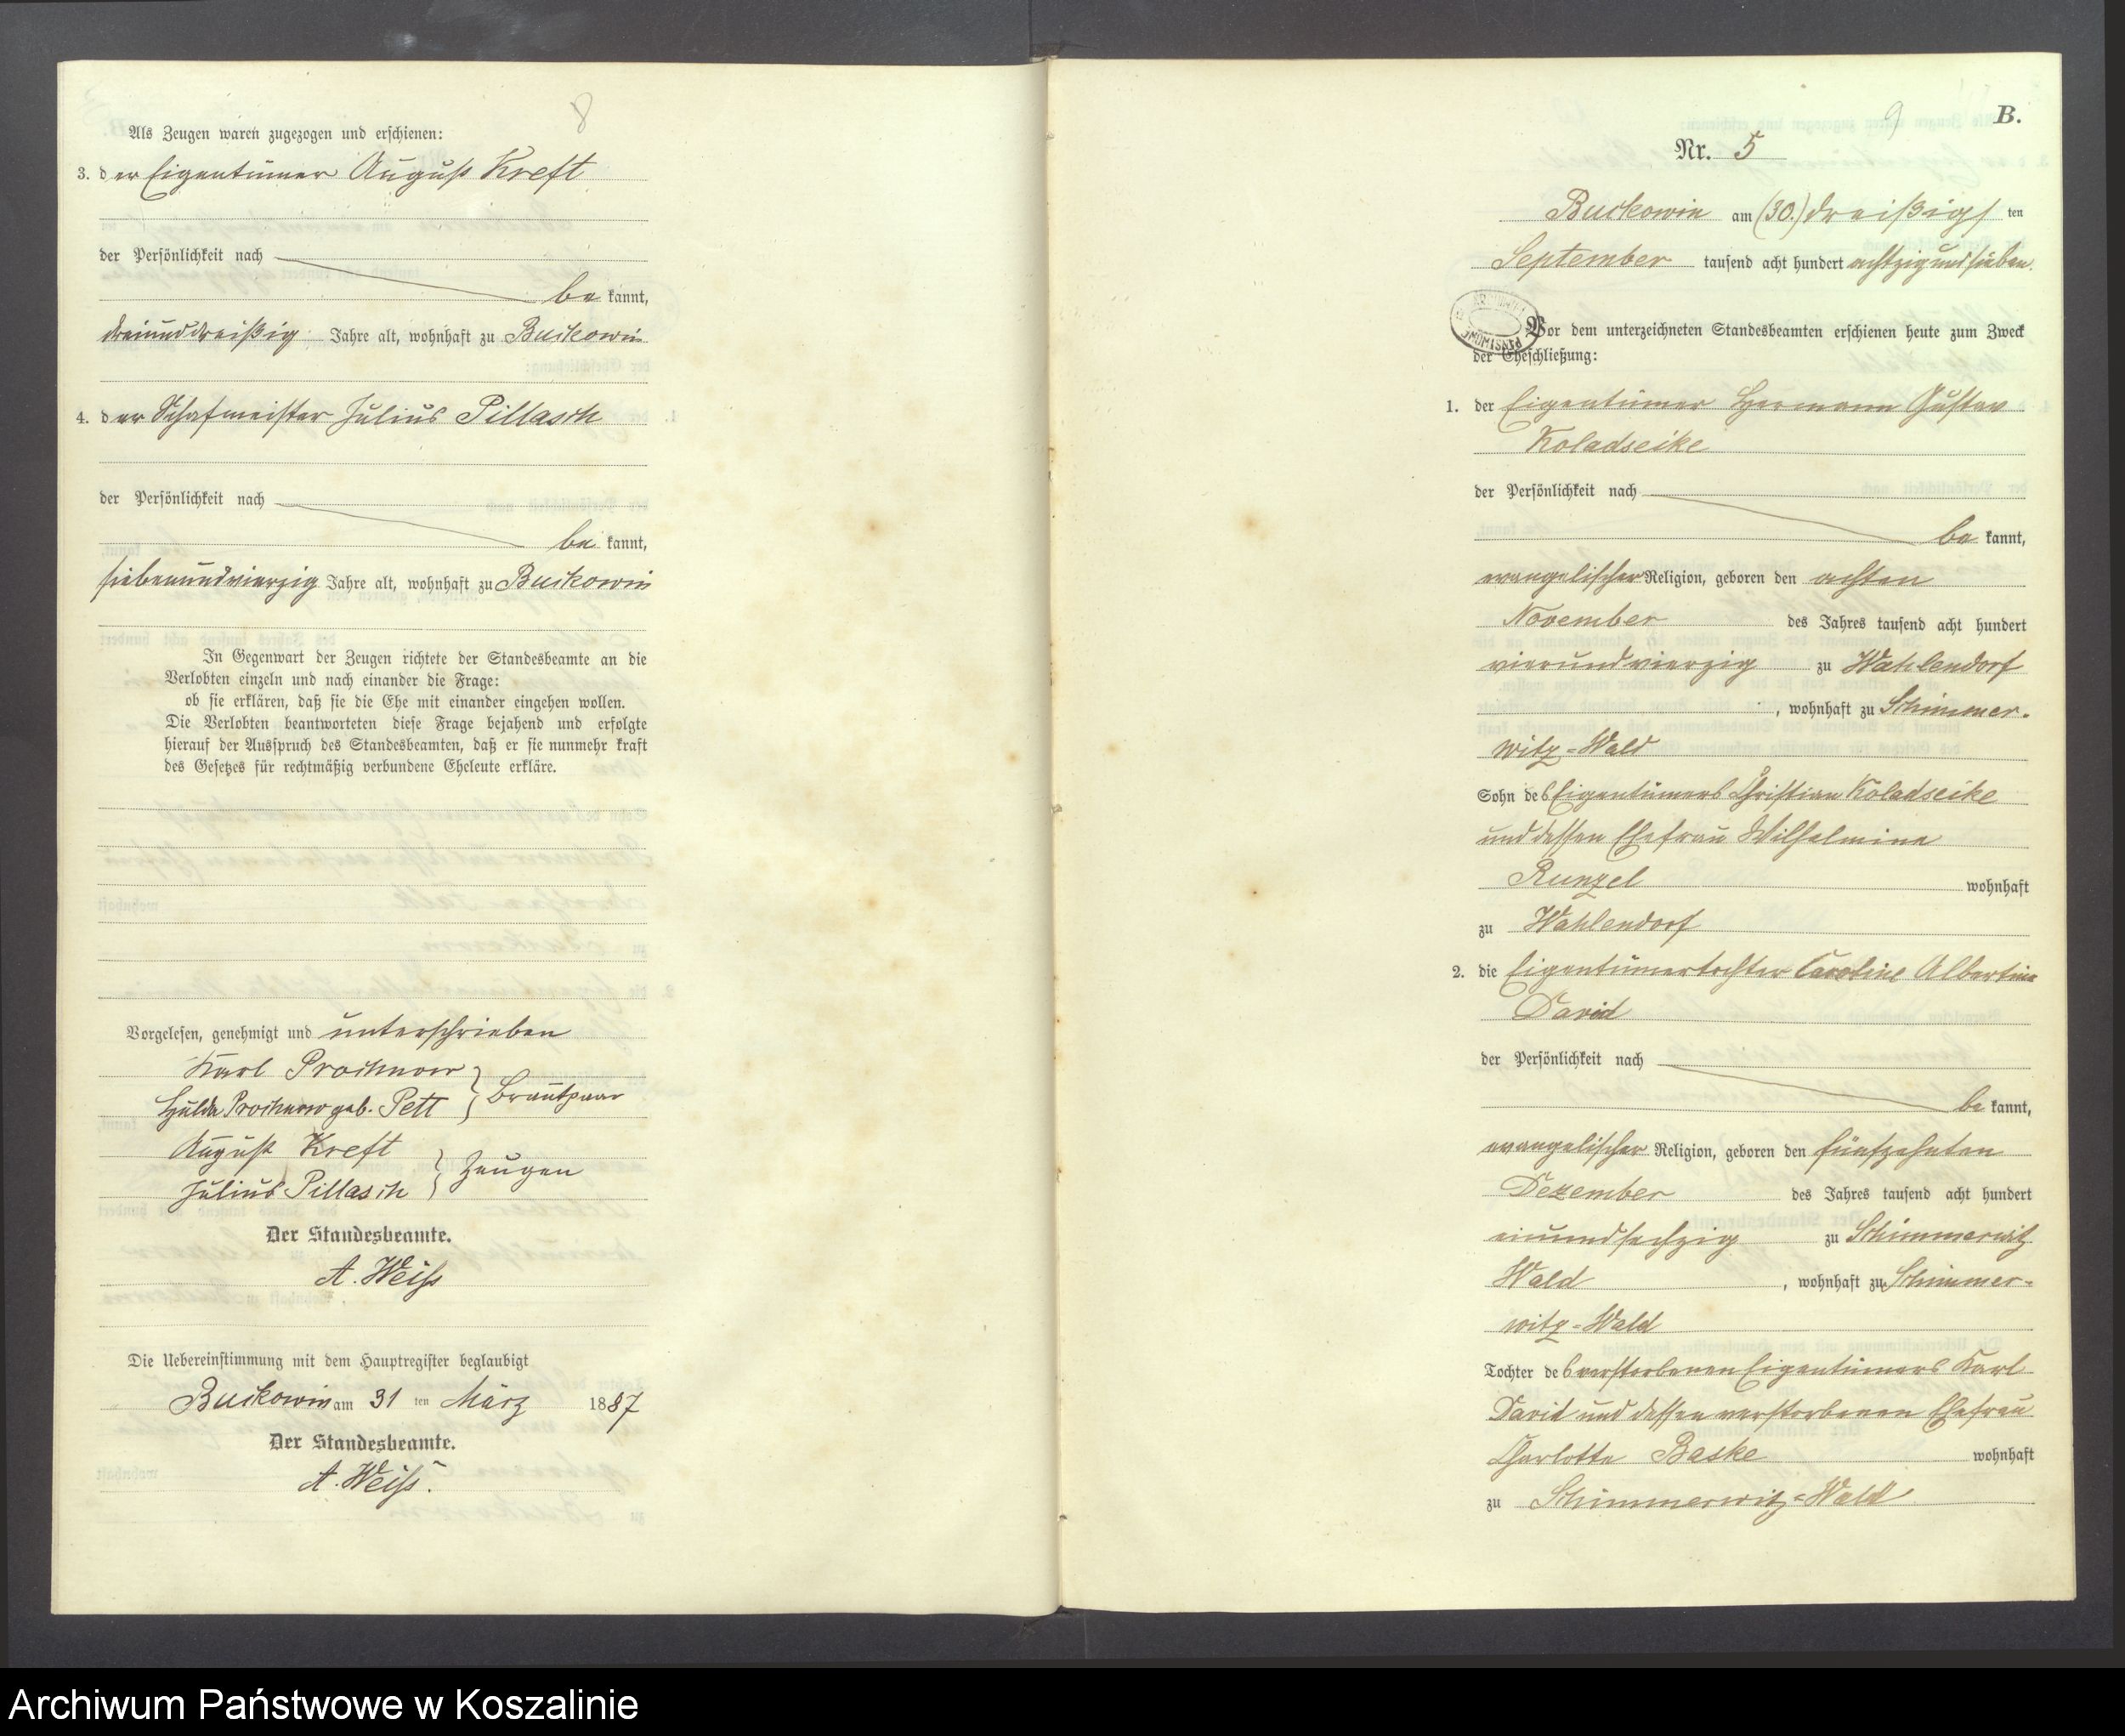 8
Als Zeugen waren zugezogen und erschienen:
3. der Eigentümer August Kreft
der Persönlichkeit nach
be kannt,
dreiunddreißig Jahre alt, wohnhaft zu Buckowin
4. der Schafmeister Julius Pillasch
der Persönlichkeit nach
be kannt,
siebenundvierzig Jahre alt, wohnhaft zu Buckowin
In Gegenwart der Zeugen richtete der Standesbeamte an die
Verlobten einzeln und nach einander die Frage:
ob sie erklären, daß sie die Ehe mit einander eingehen wollen.
Die Verlobten beantworteten diese Frage bejahend und erfolgte
hierauf der Ausspruch des Standesbeamten, daß er sie nunmehr kraft
des Gesetzes für rechtmäßig verbundene Eheleute erkläre.
Vorgelesen, genehmigt und unterschrieben
Karl Prochnow
Hulda Prochnow geb. Pett } Brautpaar
August Kreft
Julius Pillasch } Zeugen
Der Standesbeamte.
A. Weiß
Die Uebereinstimmung mit dem Hauptregister beglaubigt
Buckowin am 31 ten März 1887
Der Standesbeamte.
A. Weiß.
9
B.
Nr. 5
Buckowin am (30.) dreißigs ten
September tausend acht hundert achtzig und sieben.
Vor dem unterzeichneten Standesbeamten erschienen heute zum Zweck
der Eheschließung:
1. der Eigentümer Hermann Gustav
Koladseike
der Persönlichkeit nach
be kannt,
evangelischer Religion, geboren den achten
November des Jahres tausend acht hundert
vierundvierzig zu Wahlendorf
, wohnhaft zu Schimmer-
witz-Wald
Sohn des Eigentümers Christian Koladseike
und dessen Ehefrau Wilhelmine
Runzel wohnhaft
zu Wahlendorf
2. die Eigentümertochter Caroline Albertine
David
der Persönlichkeit nach
be kannt,
evangelischer Religion, geboren den fünfzehnten
Dezember des Jahres tausend acht hundert
einundsechzig zu Schimmerwitz
Wald , wohnhaft zu Schimmer-
witz-Wald
Tochter des verstorbenen Eigentümers Karl
David und dessen verstorbenen Ehefrau
Charlotte Baske wohnhaft
zu Schimmerwitz-Wald
Archiwum Państwowe w Koszalinie